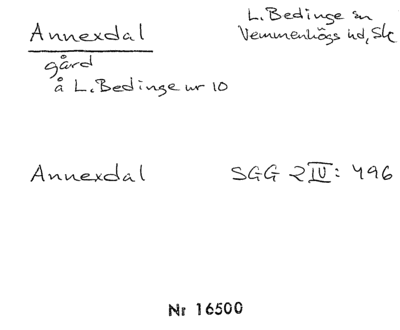 Annexdal
L. Bedinge sn
Vemmenhögs hd, Sk
gård
å L. Bedinge nr 10
Annexdal
SGG 2 IV: 496
Nr 16500